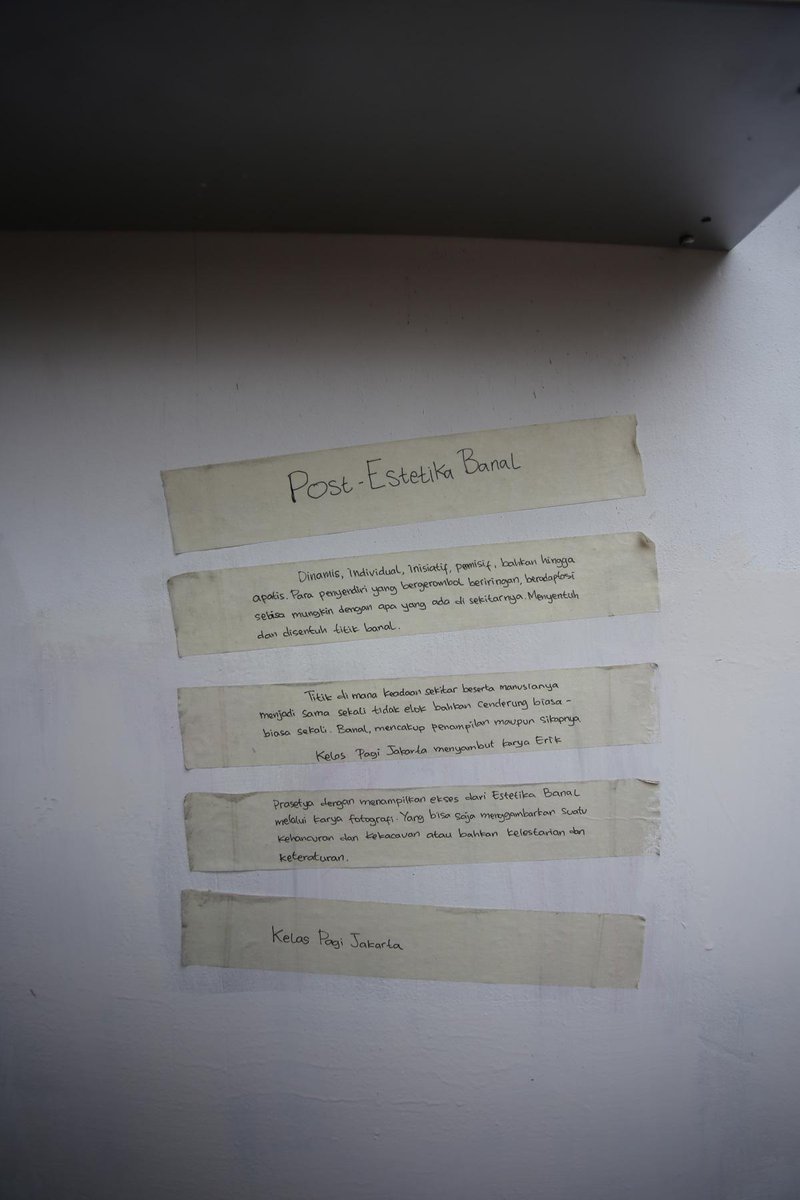 Post-Estetika Banal
Dinamis, Individual, Inisiatif, pemisif, bahkan hingga
apatis. Para penyendiri yang bergerombol beriringan, beradaptasi
sebisa mungkin dengan apa yang ada di sekitarnya. Menyentuh
dan disentuh titik banal.
Titik di mana keadaan sekitar beserta manusianya
menjadi sama sekali tidak elok bahkan cenderung biasa-
biasa sekali. Banal, mencakup penampilan maupun sikapnya
Kelas Pagi Jakarta menyambut karya Erik
Prasetya dengan menampilkan ekses dari Estetika Banal
melalui karya fotografi. Yang bisa saja menggambarkan suatu
kehancuran dan kekacauan atau bahkan kelestarian dan
keteraturan.
Kelas Pagi Jakarta